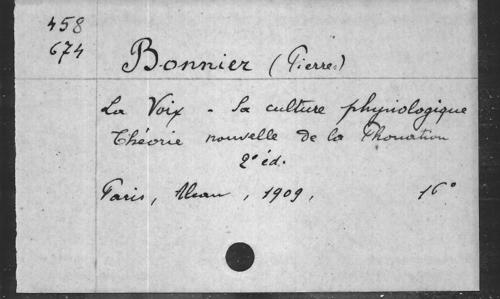 458
674
Bonnier (Pierre)
La Voix - Sa culture physiologique
Théorie nouvelle de la Phonation
2e éd.
Paris, Alcan, 1909, 16°